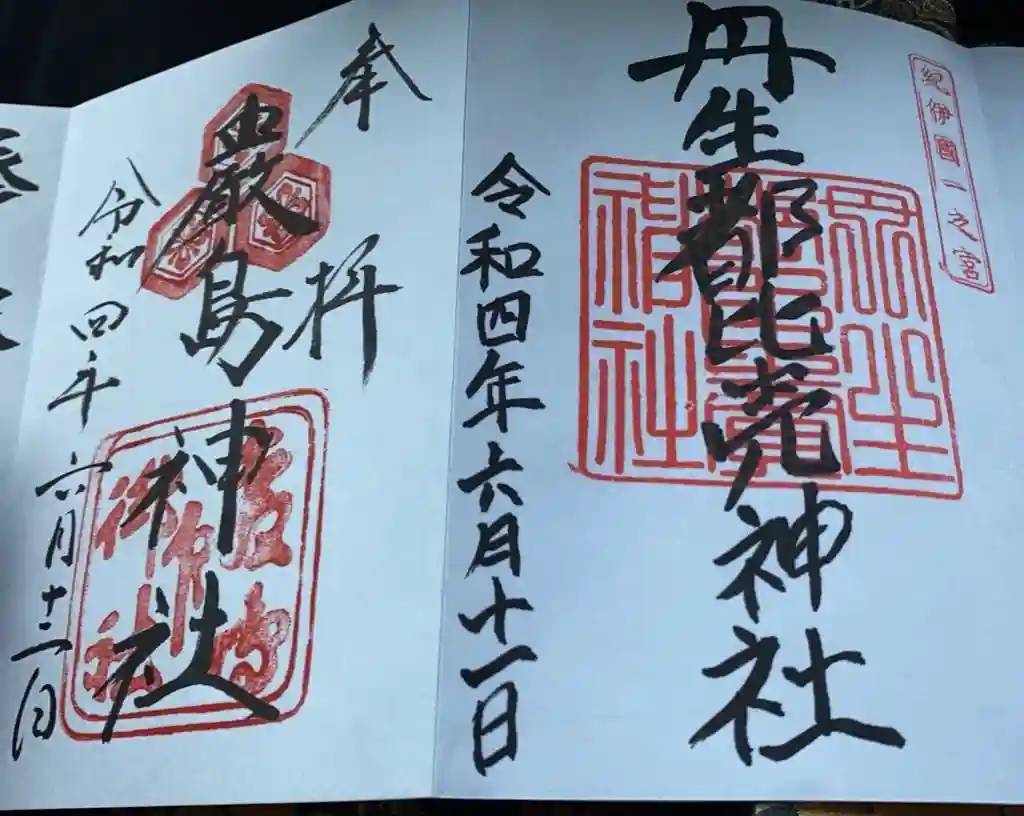 紀伊國一之宮
丹生都比売神社
丹生
都比賣
神社
令和四年六月十一日
奉拝
厳島神社
令和四年六月十二日